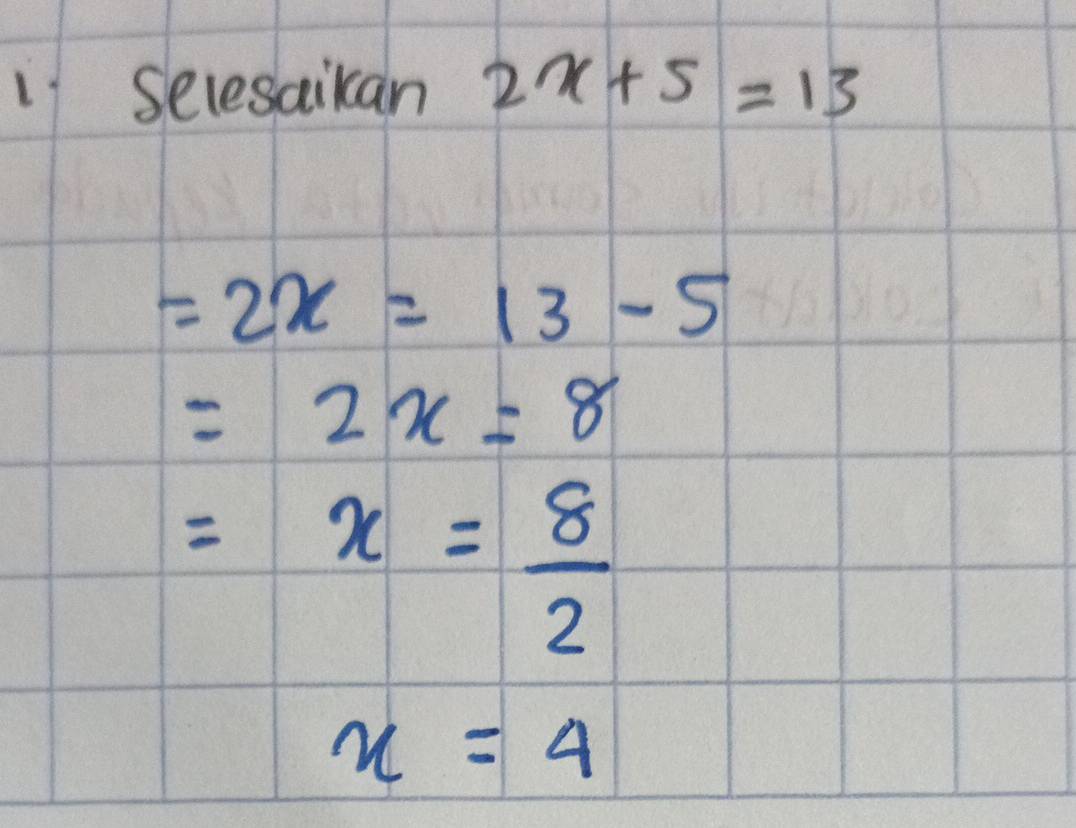 1. Selesaikan 2x + 5 = 13
= 2x = 13 - 5
= 2x = 8
= x = 8/2
x = 4